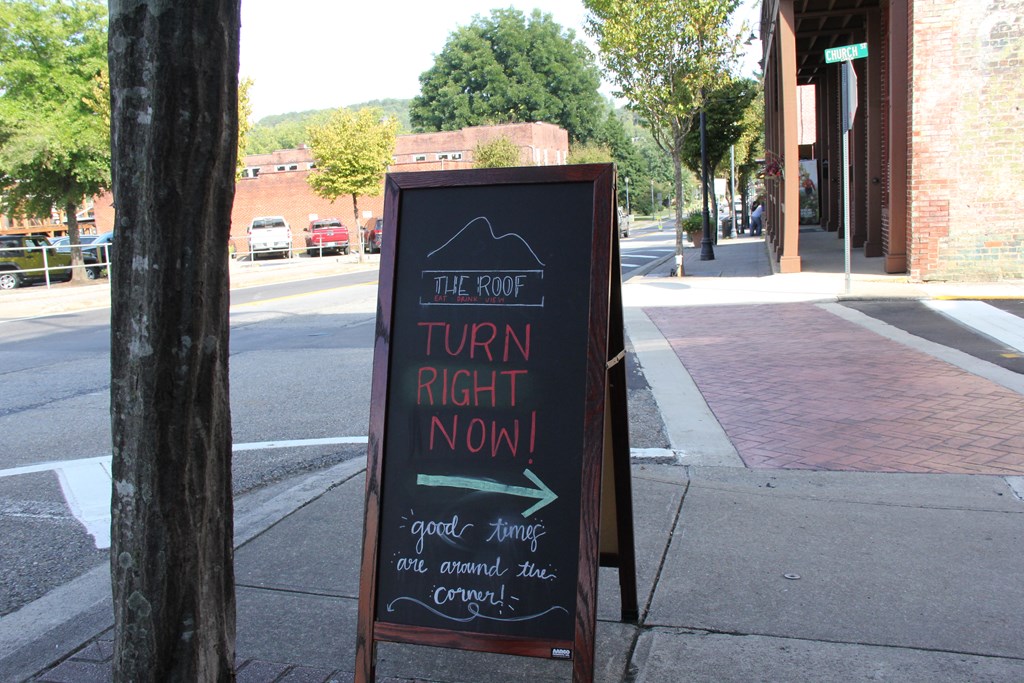 CHURCH ST
THE ROOF
EAT DRINK VIEW
TURN
RIGHT
NOW!
good times
are around the
corner!